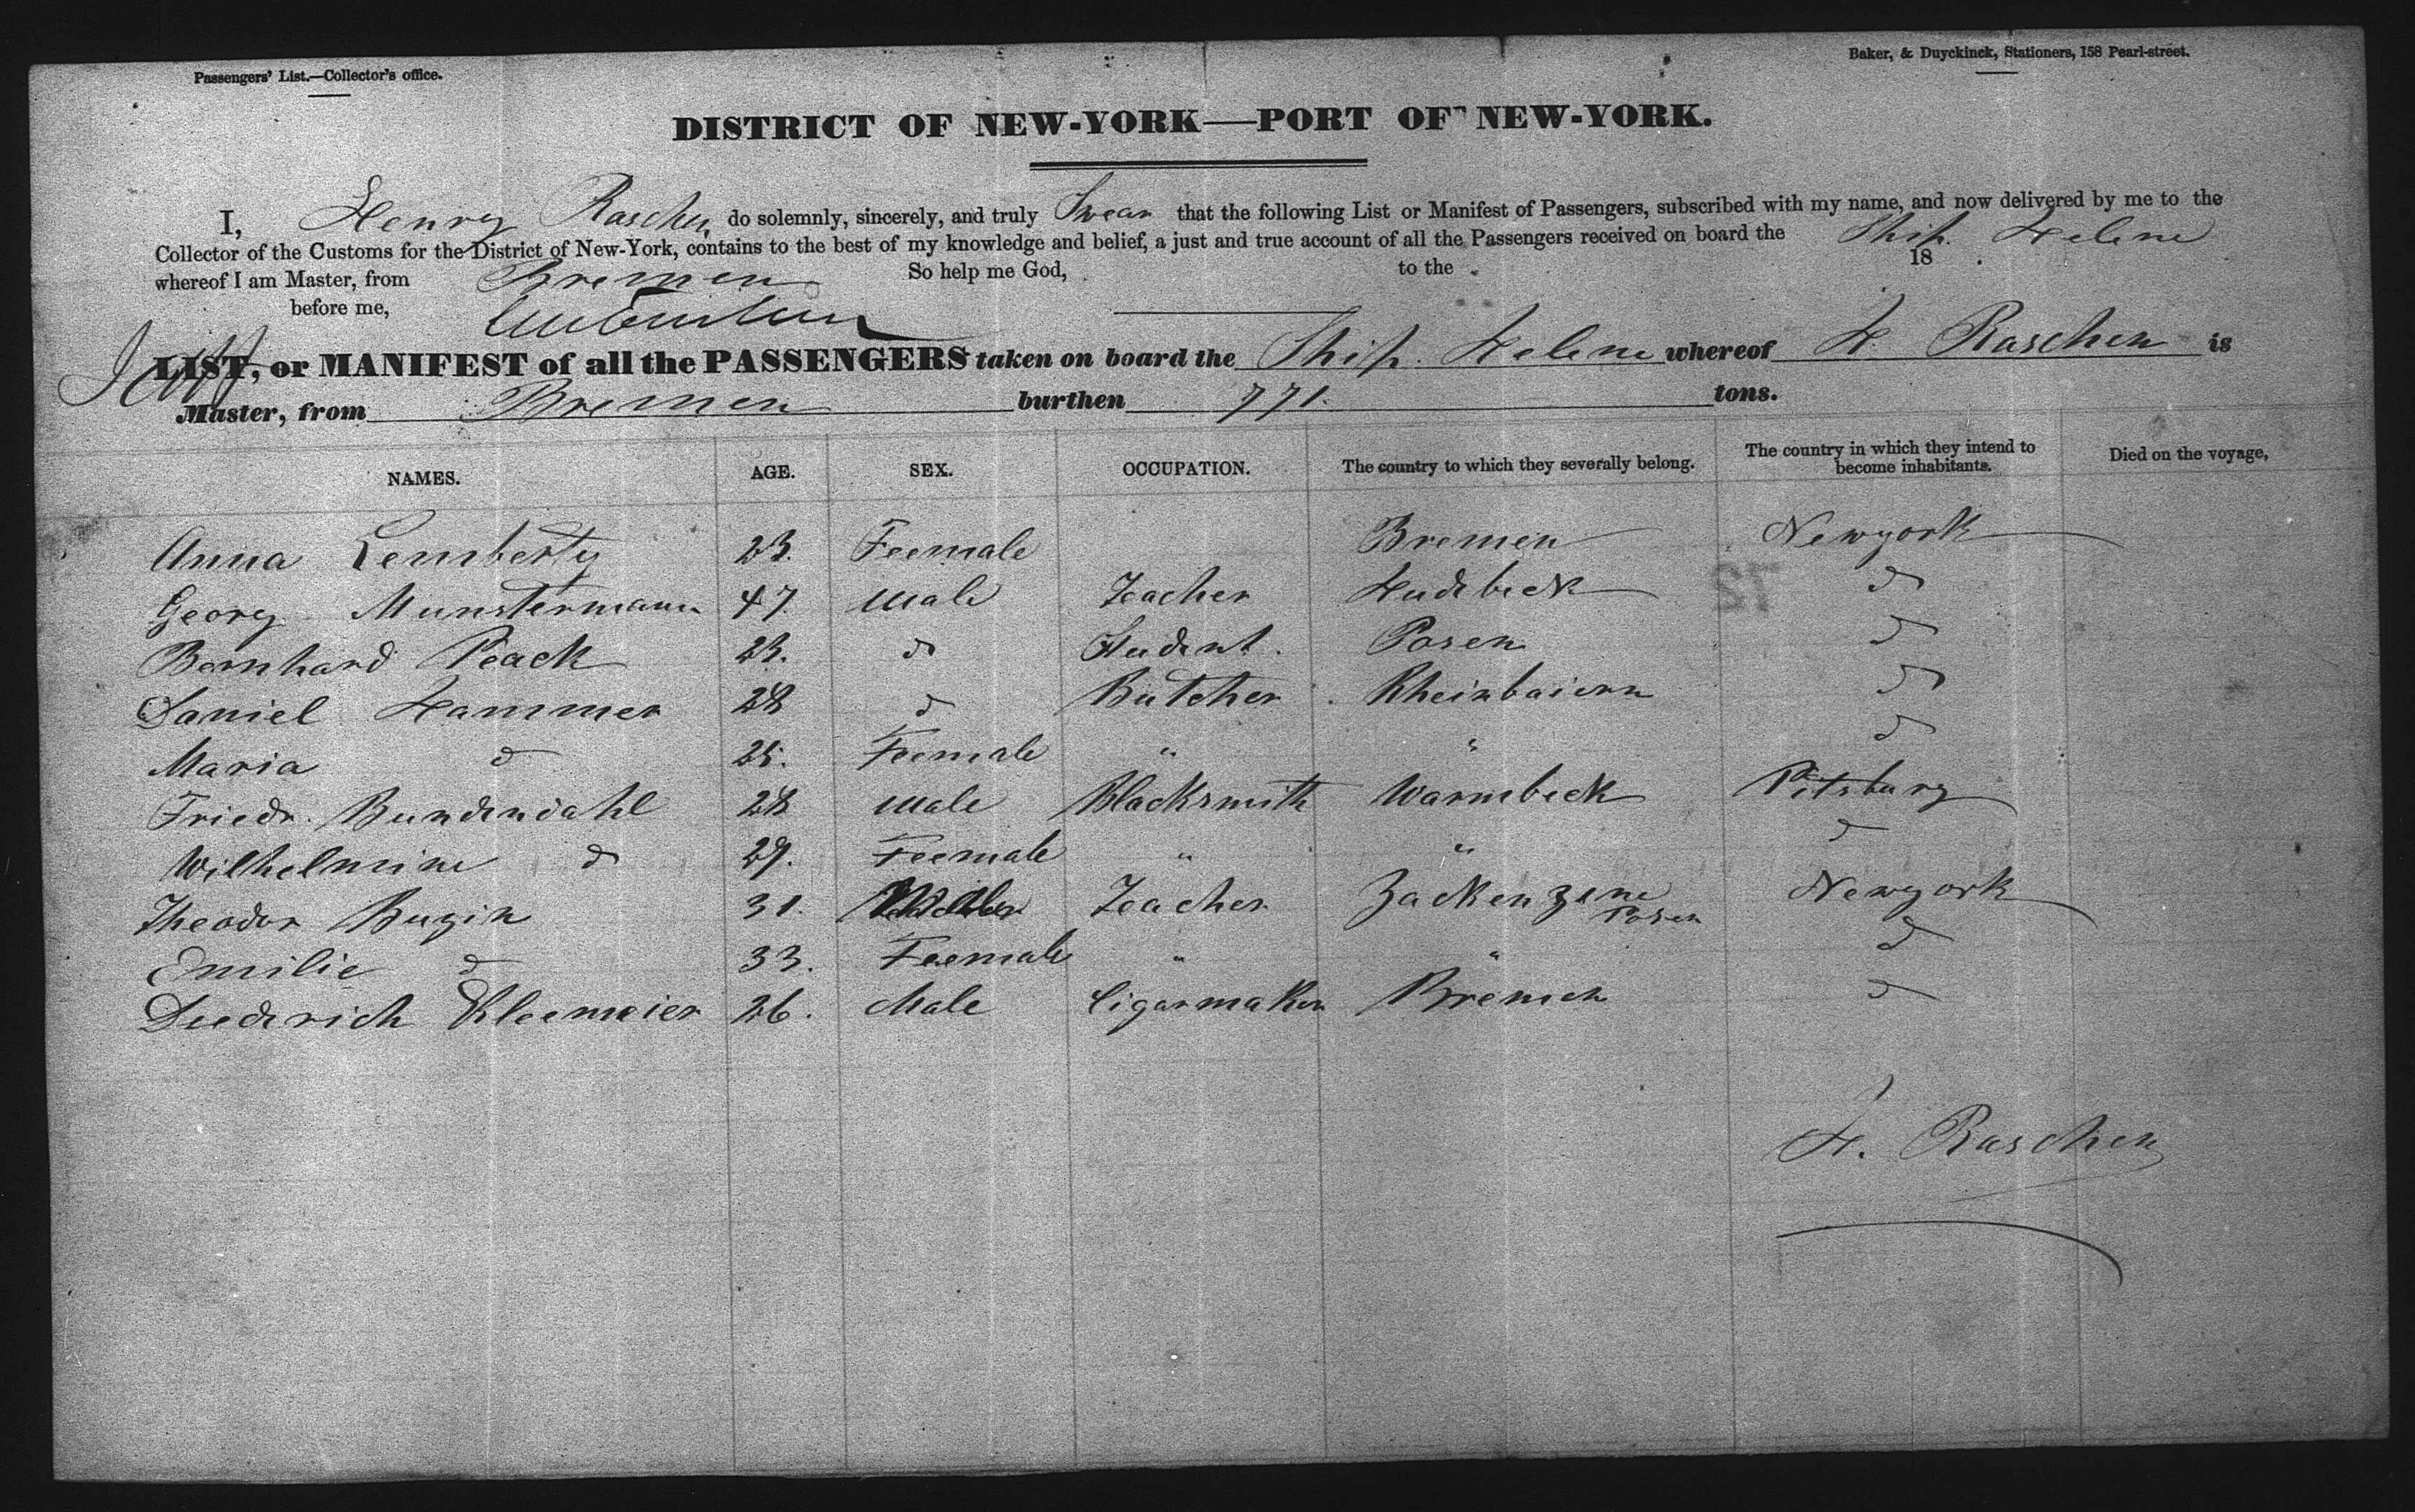 Passengers' List.—Collector's office.
Baker, & Duyckinck, Stationers, 158 Pearl-street.
DISTRICT OF NEW-YORK—PORT OF NEW-YORK.
I, Henry Raschen do solemnly, sincerely, and truly Swear that the following List or Manifest of Passengers, subscribed with my name, and now delivered by me to the
Collector of the Customs for the District of New-York, contains to the best of my knowledge and belief, a just and true account of all the Passengers received on board the Ship. Helene
whereof I am Master, from Bremen So help me God, to the 18
before me,
LIST, or MANIFEST of all the PASSENGERS taken on board the Ship. Helene whereof H Raschen is
Master, from Bremen burthen 771. tons.
NAMES. AGE. SEX. OCCUPATION. The country to which they severally belong. The country in which they intend to become inhabitants. Died on the voyage,
Anna Lemberty 23. Feemale Bremen Newyork
Georg Munstermann 47. Male Teacher Hudebeck do
Bernhard Peack 23. do Student. Posen do
Daniel Hammer 28 do Butcher Rheinbaiern do
Maria do 25. Feemale " " do
Friedr. Bundendahl 28 Male Blacksmith Warmbeck Pitsburg
Wilhelmine do 29. Feemale " " do
Theodor Buzin 31. Male Teacher Zackenzene Posen Newyork
Emilie do 33. Feemale " " do
Diederich Kleemeier 26. Male Cigarmaker Bremen do
H. Raschen
72